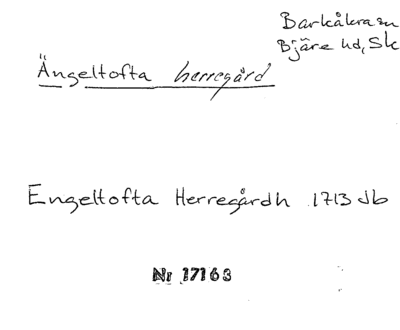 Barkåkra sn
Bjäre hd, Sk
Ängeltofta herregård
Engeltofta Herregårdh 1713 Jb
Nr 17163